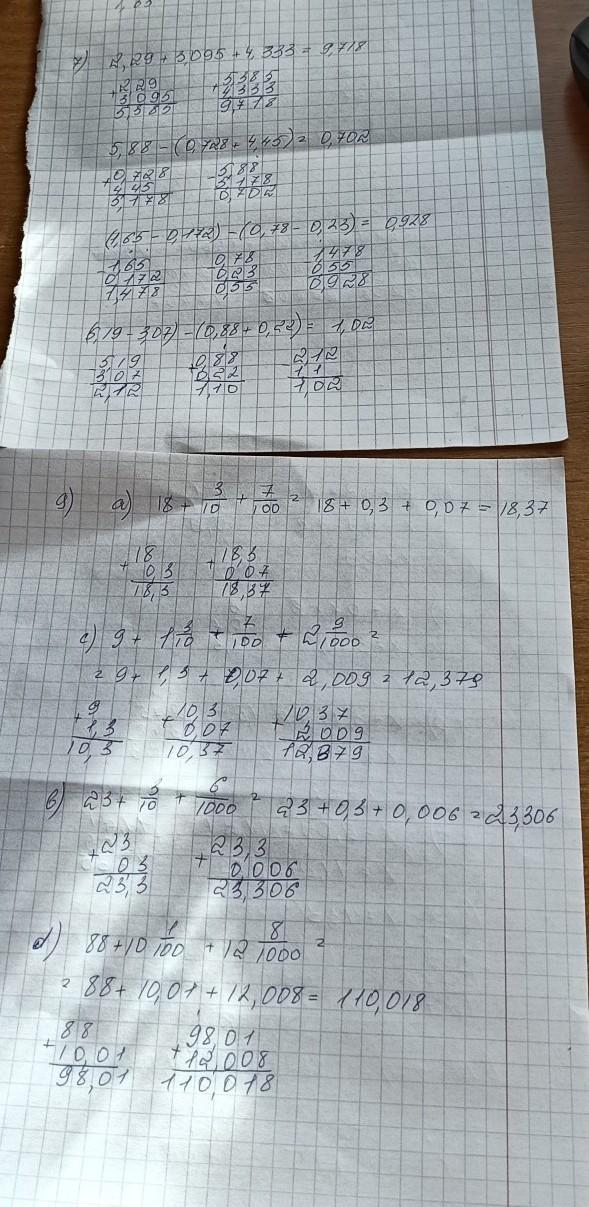 7) 2,29 + 3,095 + 4,333 = 9,718
+2,29 +5,385
3,095 4,333
5,385 9,718
5,88 - (0,728 + 4,45) = 0,702
+0,728 -5,88
4,45 5,178
5,178 0,702
(1,65 - 0,172) - (0,78 - 0,23) = 0,928
-1,65 -0,78 -1,478
0,172 0,23 0,55
1,478 0,55 0,928
5,19 - 3,07) - (0,88 + 0,22) = 1,02
-5,19 +0,88 -2,12
3,07 0,22 1,1
2,12 1,10 1,02
9) a) 18 + 3/10 + 7/100 = 18 + 0,3 + 0,07 = 18,37
+18 +18,3
0,3 0,07
18,3 18,37
c) 9 + 1 3/10 + 7/100 + 2 9/1000 =
= 9 + 1,3 + 0,07 + 2,009 = 12,379
+9 +10,3 +10,37
1,3 0,07 2,009
10,3 10,37 12,379
b) 23 + 3/10 + 6/1000 = 23 + 0,3 + 0,006 = 23,306
+23 +23,3
03 0,006
23,3 23,306
d) 88 + 10 1/100 + 12 8/1000 =
= 88 + 10,01 + 12,008 = 110,018
+88 +98,01
10,01 12,008
98,01 110,018